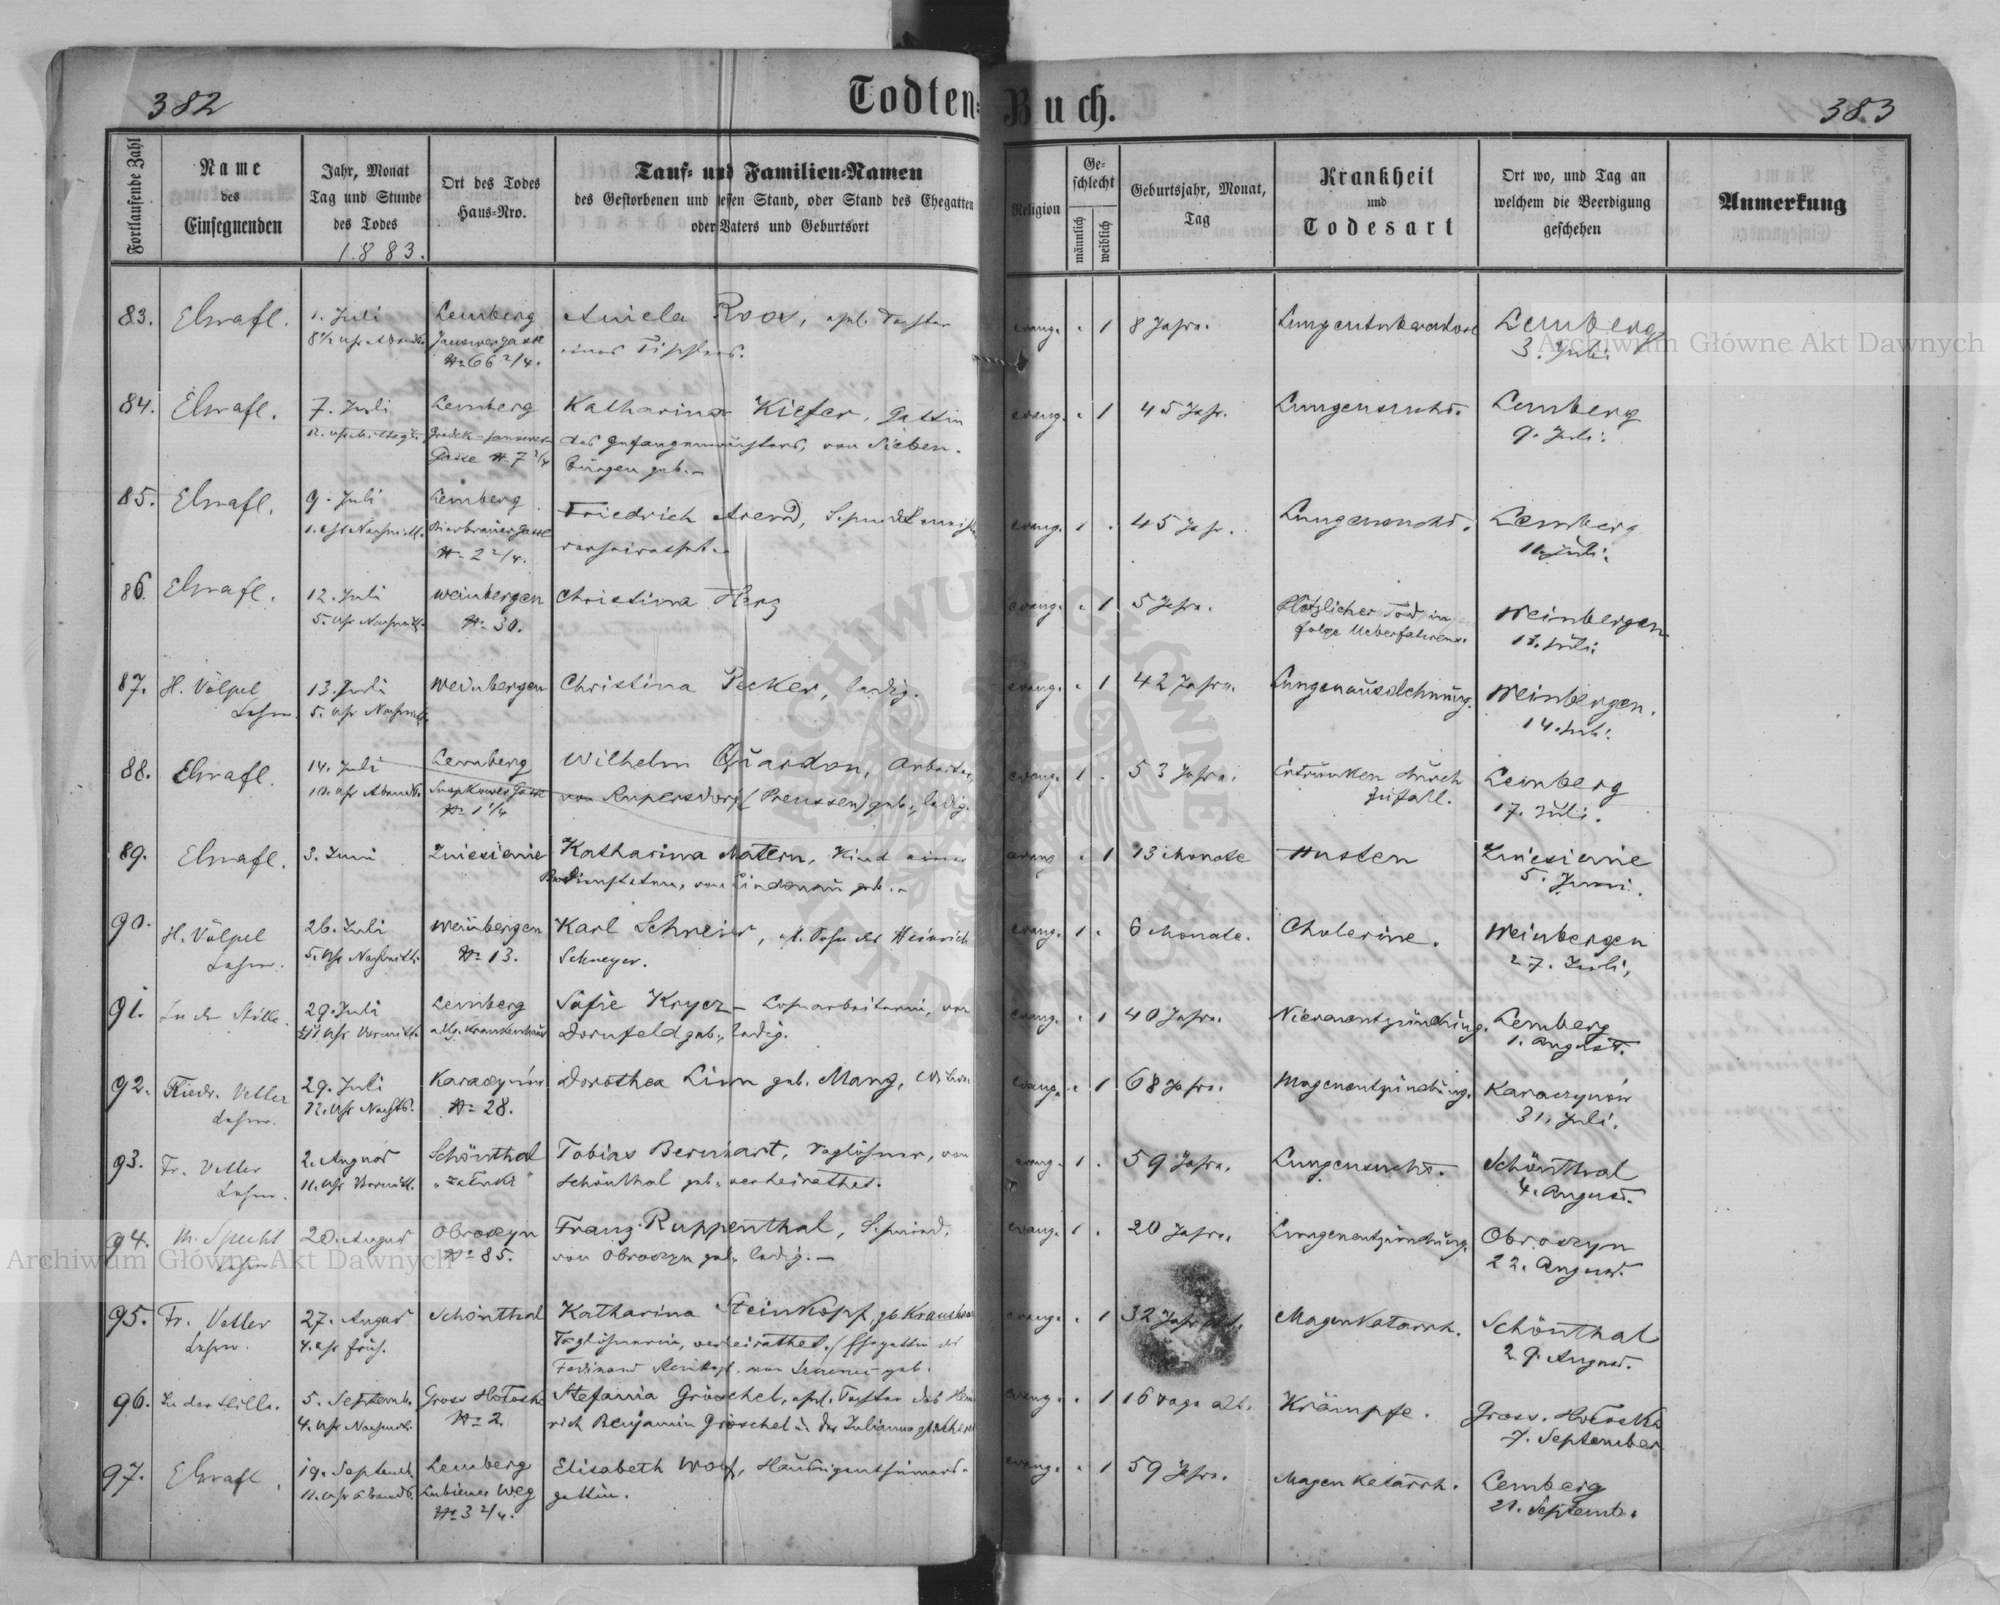 382
Todten-Buch.
383
Fortlaufende Zahl
Name
des
Einsegnenden
Jahr, Monat
Tag und Stunde
des Todes
1883.
Ort des Todes
Haus-Nro.
Tauf- und Familien-Namen
des Gestorbenen und dessen Stand, oder Stand des Ehegatten
oder Vaters und Geburtsort
Religion
Ge-
schlecht
männlich
weiblich
Geburtsjahr, Monat,
Tag
Krankheit
und
Todesart
Ort wo, und Tag an
welchem die Beerdigung
geschehen
Anmerkung
83.
1. Juli
Lemberg
Janowergasse
№ 66 2/4.
Aniela Roos, ehel. Tochter
eines Tischlers.
evang. 1 8 Jahre.
Lungentuberculose
Lemberg
3. Juli
84.
7. Juli
Lemberg
Grodek-Janower
Gasse № 7 2/4
Katharina Kiefer, Gattin
des Gefangenwächters, von Sieben-
bürgen geb.
evang. 1 45 Jahr.
Lungensucht.
Lemberg
9. Juli.
85.
9. Juli
1. Uhr Nachmitt.
Lemberg
Bierbrauergasse
№ 2 2/4.
Friedrich Arend,
verheirathet.
evang. 1 45 Jahr.
Lungensucht.
Lemberg
11. Juli.
86.
12. Juli
5. Uhr Nachmitt.
Weinbergen
№ 30.
Christina Herz
evang. 1 5 Jahre.
Plötzlicher Tod in
folge Ueberfahrens.
Weinbergen
Juli.
87.
H. Völpel
Lehrer.
13. Juli
5. Uhr Nachmitt.
Weinbergen
Christina Pecker, ledig.
evang. 1 42 Jahre.
Lungenausdehnung.
Weinbergen.
14. Juli.
88.
14. Juli
10. Uhr Abends.
Lemberg
№ 1 1/4
Wilhelm Quardon, Arbeiter,
von Rupersdorf (Preussen) geb., ledig.
evang. 1 53 Jahre.
Ertrunken durch
Zufall.
Lemberg
17. Juli.
89.
3. Juni
Zniesienie
Katharina Natern, Kind eines
Bediensteten, von Lindenau geb.
evang. 1 13 Monate
Husten
Zniesienie
5. Juni.
90.
H. Völpel
Lehrer.
26. Juli
5. Uhr Nachmitt.
Weinbergen
№ 13.
Karl Schneier, ehl. Sohn des Heinrich
Schneyer.
evang. 1 6 Monate.
Cholerine.
Weinbergen
27. Juli.
91.
In der Stille.
29. Juli
Lemberg
allg. Krankenhaus
Sofie Krycz - Lohnarbeiterin, von
Dornfeld geb., ledig.
evang. 1 40 Jahre.
Nierenentzündung.
Lemberg
1. August.
92.
Friedr. Vetter
Lehrer.
29. Juli
12. Uhr Nachts.
Karaczynów
№ 28.
Dorothea Linn geb. Manz, Witwe
evang. 1 68 Jahre.
Magenentzündung.
Karaczynów
31. Juli.
93.
Fr. Vetter
Lehrer.
2. August
11. Uhr Vormitt.
Schönthal
Tobias Bernhart, Taglöhner, von
Schönthal geb., verheirathet.
evang. 1 59 Jahre.
Lungensucht.
Schönthal
4. August.
94.
M. Specht
Lehrer
20. August
Obroszyn
№ 85.
Franz Ruppenthal, Schmied,
von Obroszyn geb., ledig.
evang. 1 20 Jahre.
Lungenentzündung.
Obroszyn
22. August.
95.
Fr. Vetter
Lehrer.
27. August
4. Uhr früh.
Schönthal
Katharina Steinkopf, gb.
Taglöhnerin, verheirathet. / Ehegattin des
Ferdinand Steinkopf, von geb.
evang. 1 32 Jahr alt.
Magenkatarrh.
Schönthal
29. August.
96.
In der Stille.
5. Septemb.
4. Uhr Nachmitt.
№ 2.
Stefania Gröschel, ehel. Tochter des Hein-
rich Benjamin Gröschel u. der Julianna
evang. 1 16 Tage alt.
Krämpfe.
7. September
97.
19. Septemb.
11. Uhr Abends.
Lemberg
Lubiener Weg
№ 3 2/4.
Elisabeth Wolf, Hauseigenthümers-
gattin.
evang. 1 59 Jahre.
Magenkatarrh.
Lemberg
21. Septemb.
Archiwum Główne Akt Dawnych
Archiwum Główne Akt Dawnych
ARCHIWUM GŁÓWNE AKT DAWNYCH